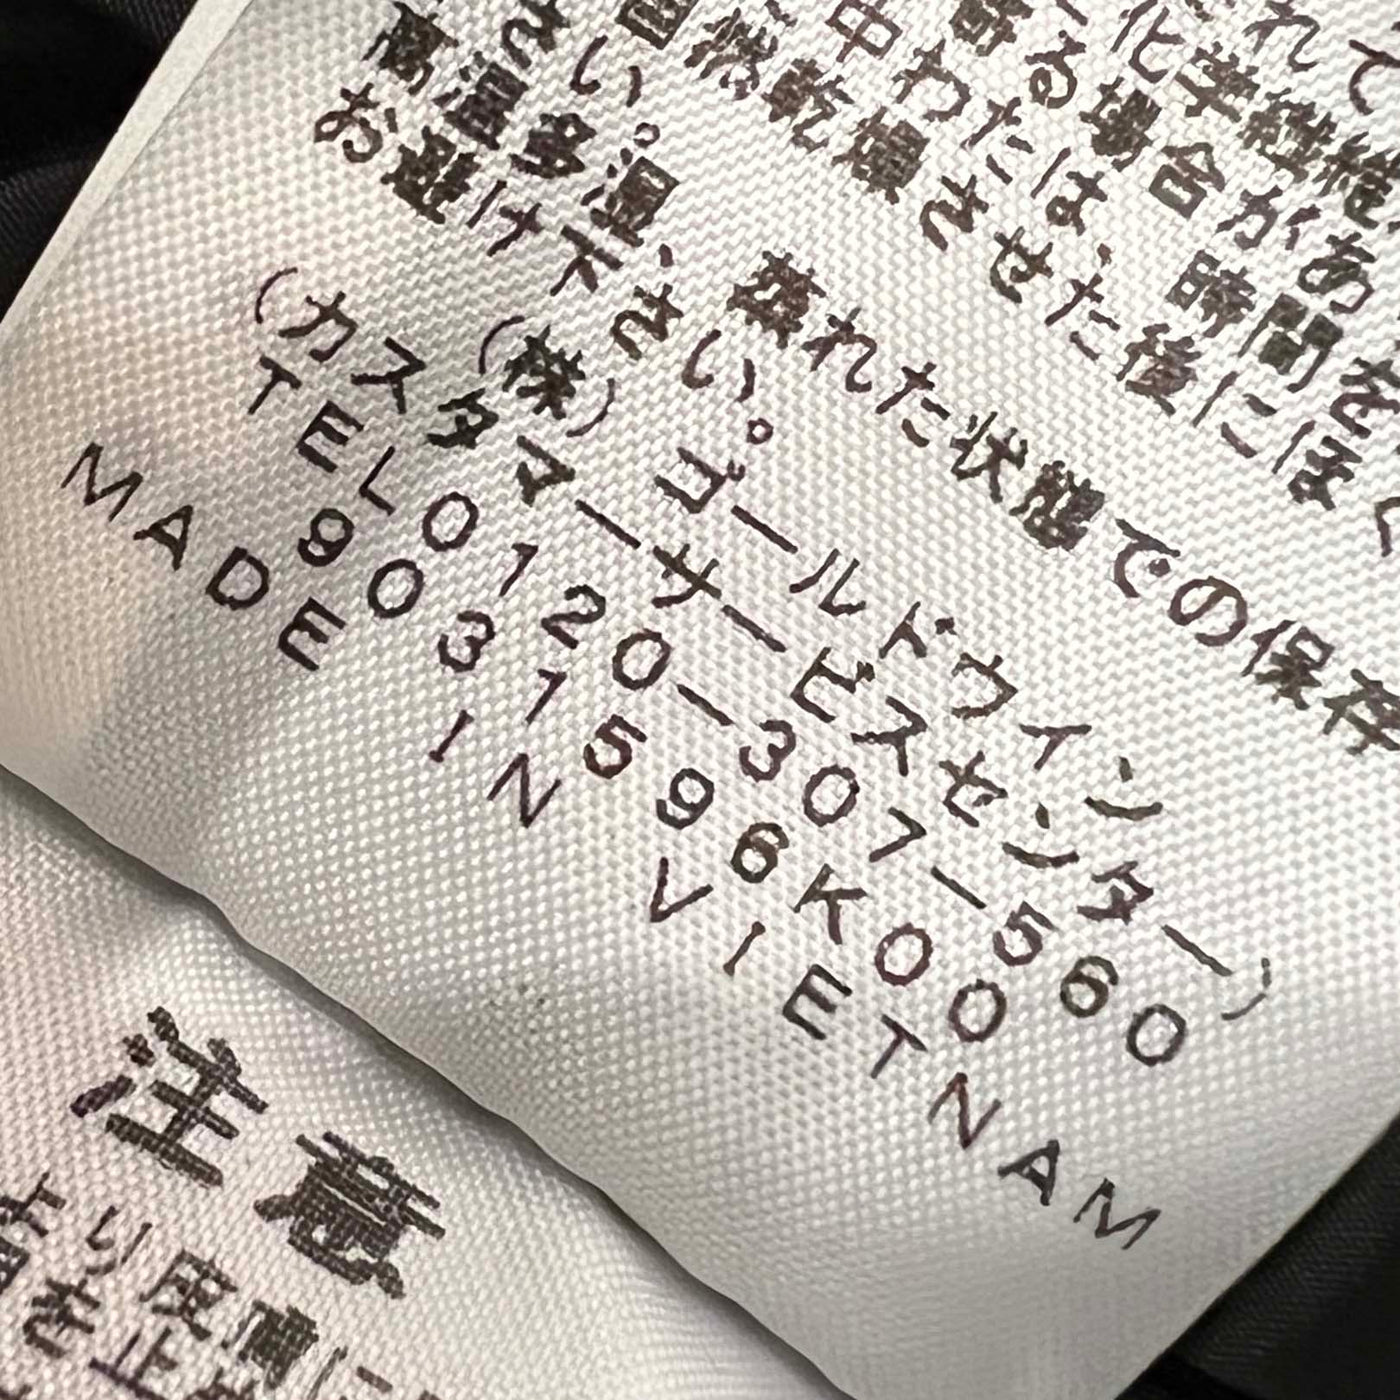 れて
化学繊維
寄る場合があ
中わたは、時間を
自然乾燥させた後にほ
さい。
高温多湿、蒸れた状態での保存
お避け下さい。
(株)ゴールドウイン
(カスタマーサービスセンター)
TEL0120-307-560
9031596K00
MADE IN VIETNAM
注意
より皮膚に
を止め